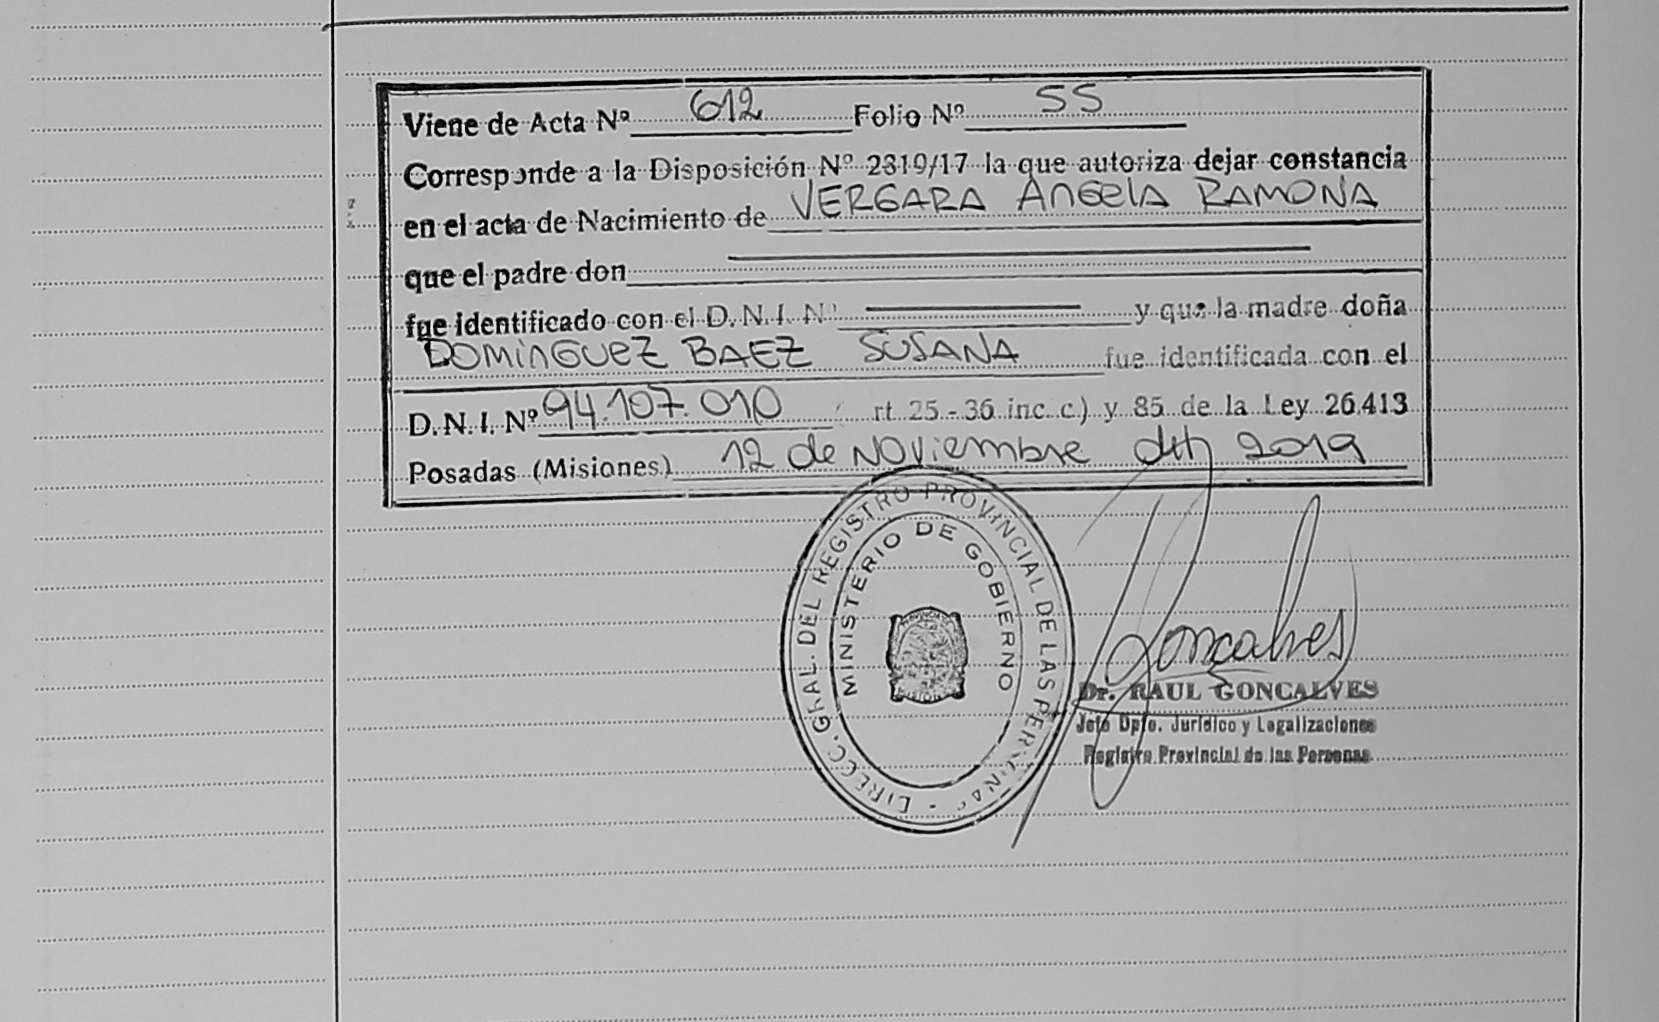 Viene de Acta Nº 612 Folio Nº 55
Corresponde a la Disposición Nº 2319/17 la que autoriza dejar constancia
en el acta de Nacimiento de VERGARA ÁNGELA RAMONA
que el padre don
fue identificado con el D.N.I. Nº y que la madre doña
DOMINGUEZ BAEZ SUSANA fue identificada con el
D.N.I. Nº 94.107.010 rt 25 - 36 inc c) y 85 de la Ley 26.413
Posadas (Misiones) 12 de Noviembre 2019
DIRECC. GRAL. DEL REGISTRO PROVINCIAL DE LAS PERSONAS
MINISTERIO DE GOBIERNO
Goncalves
Dr. RAUL GONCALVES
Jefe Dpto. Jurídico y Legalizaciones
Registro Provincial de las Personas